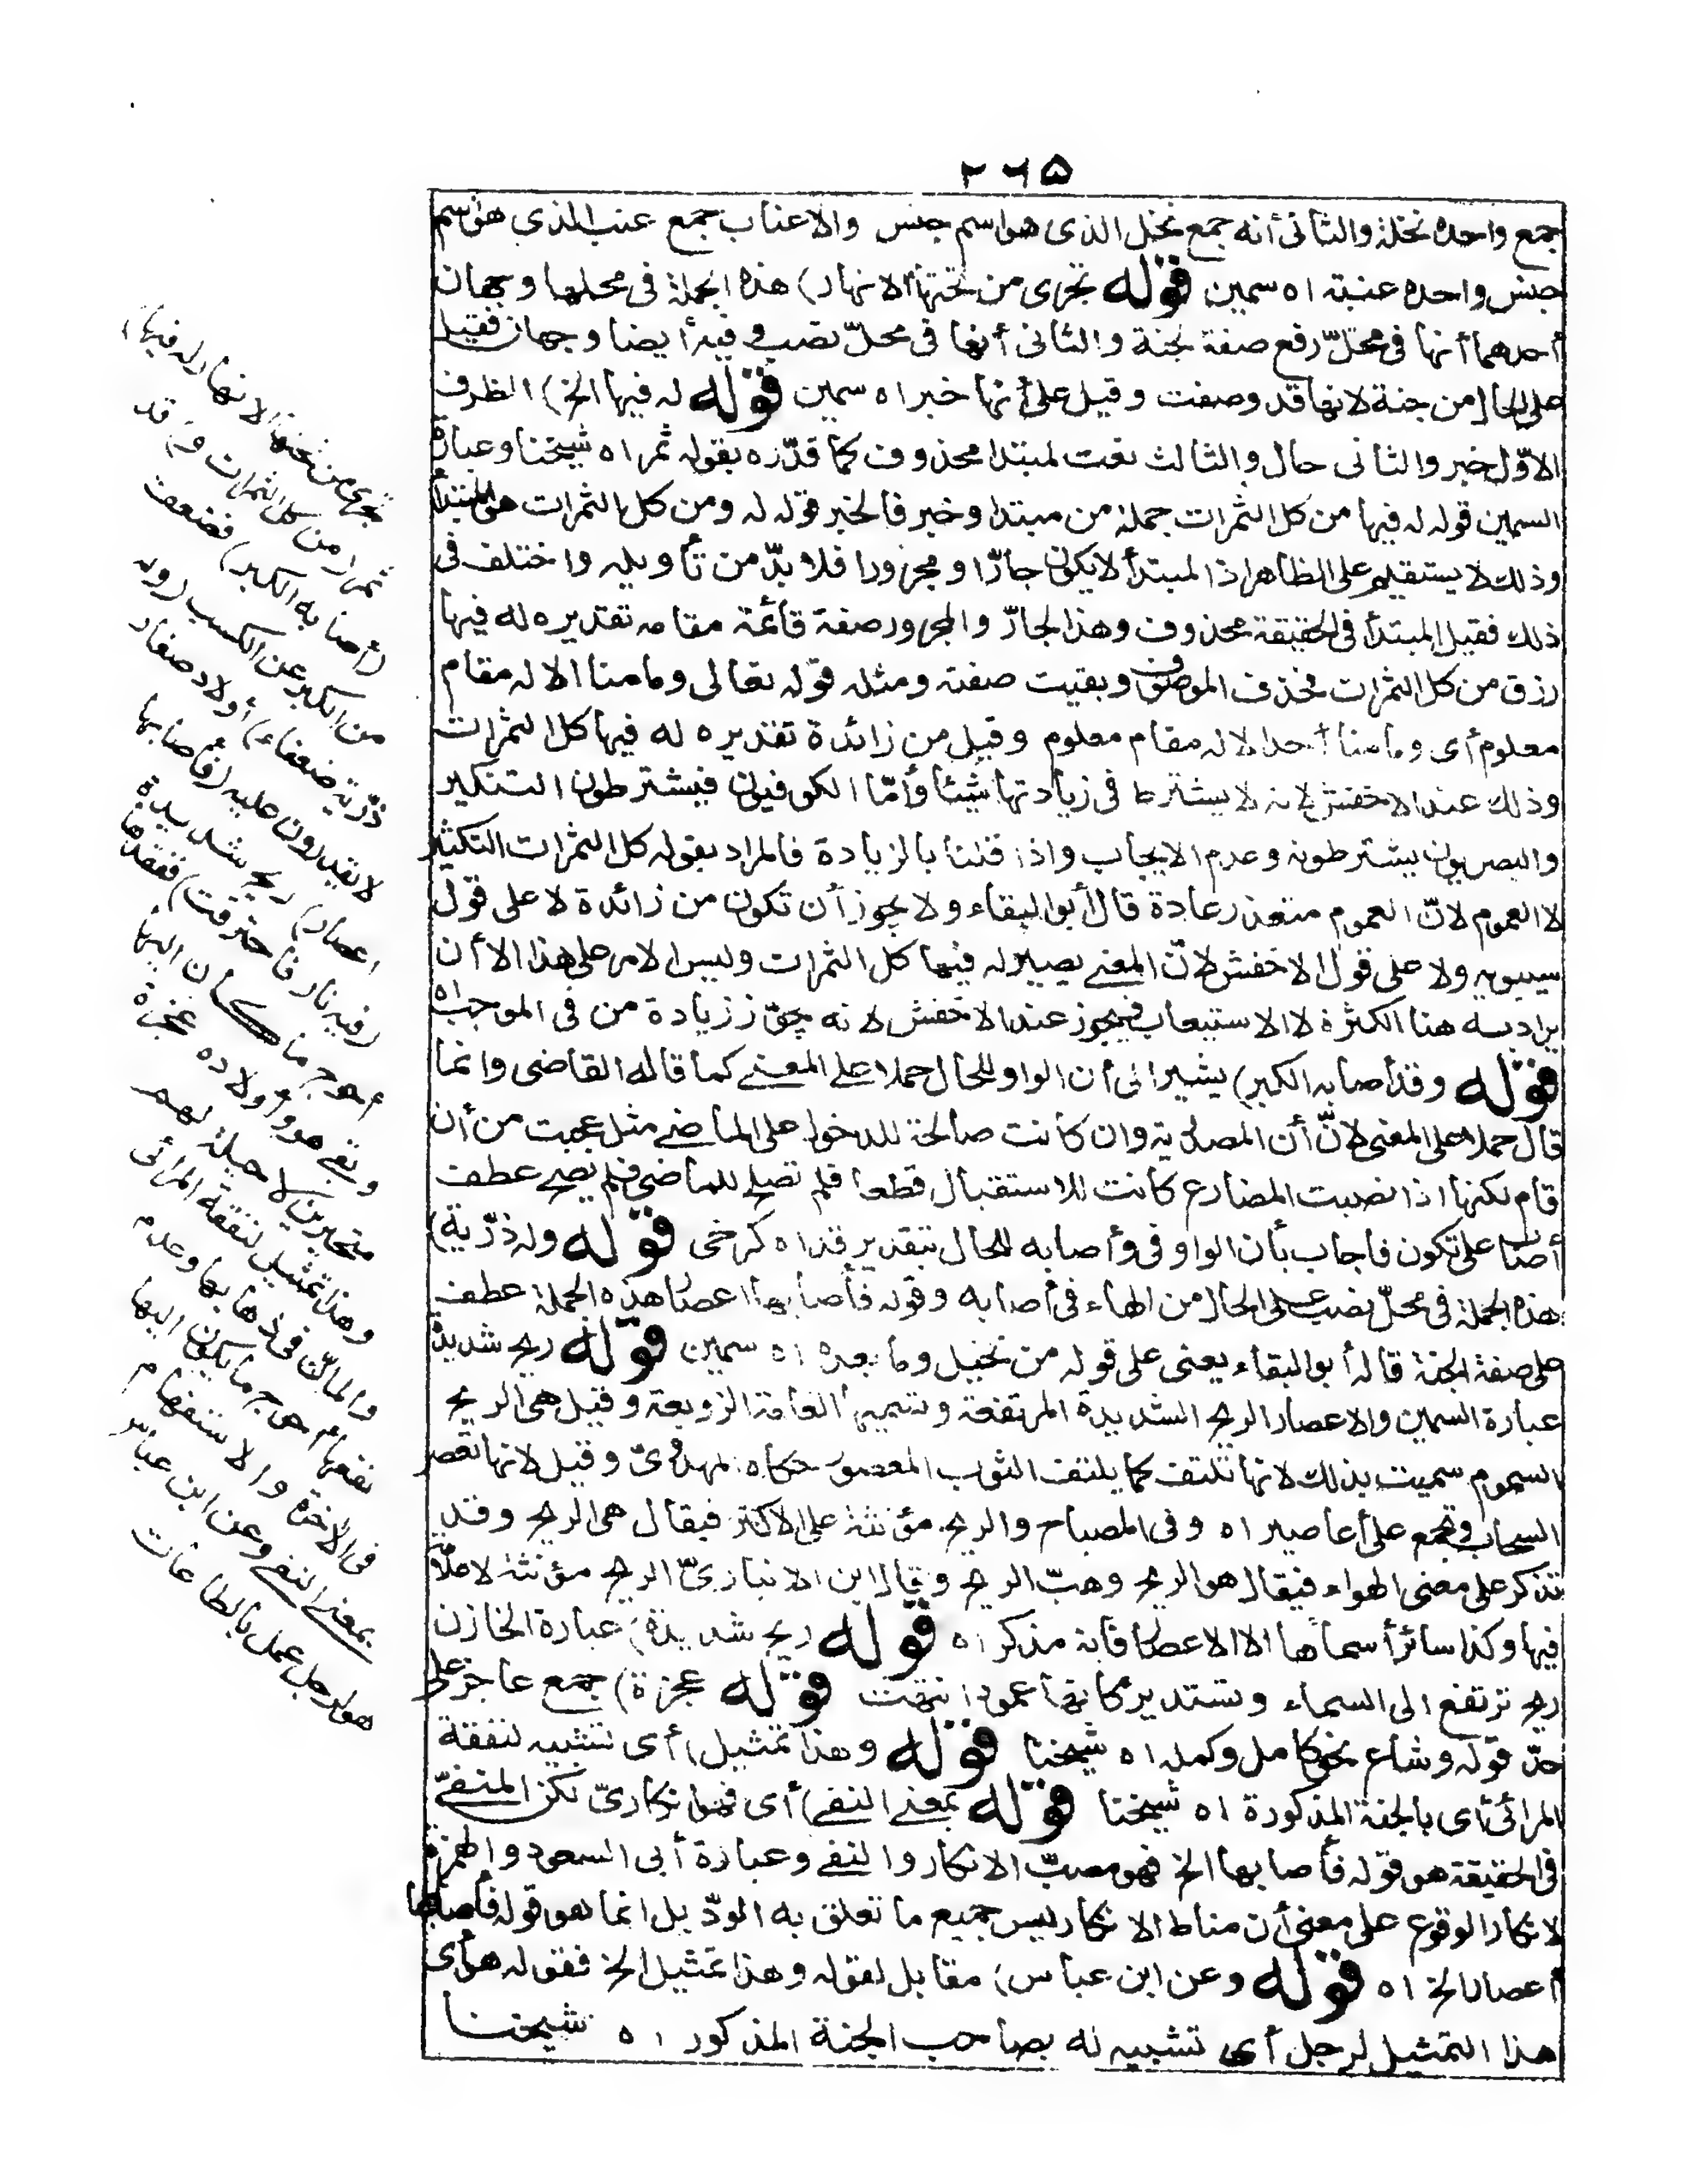 ٢٦٥
جمع واحده نخلة والثانى أنه جمع نخل الذى هو اسم جنس والاعناب جمع عنب الذى هو اسم
جنس واحده عنبة اه سمين قوله تجرى من تحتها الانهار) هذه الجملة فى محلها وجهان
أحدهما أنها فى محلّ رفع صفة لجنة والثانى أنها فى محلّ نصب وفيه أيضا وجهان فقيل
على الحال من جنة لانها قد وصفت وقيل على أنها خبر اه سمين قوله له فيها الخ) الظرف
الاوّل خبر والثانى حال والثالث نعت لمبتدا محذوف كما قدّره بقوله ثمر اه شيخنا وعبارة
السمين قوله له فيها من كل الثمرات جملة من مبتدا وخبر فالخبر قوله له ومن كل الثمرات هو المبتدأ
وذلك لا يستقيم على الظاهر اذ المبتدأ لا يكون جارّا ومجرورا فلا بدّ من تأويله واختلف فى
ذلك فقيل المبتدأ فى الحقيقة محذوف وهذا الجارّ والمجرور صفة قائمة مقامه تقديره له فيها
رزق من كل الثمرات فحذف الموصوف وبقيت صفته ومثله قوله تعالى وما منا الا له مقام
معلوم أى وما منا أحد الا له مقام معلوم وقيل من زائدة تقديره له فيها كل الثمرات
وذلك عند الاخفش لانه لا يشترط فى زيادتها شيئا وأمّا الكوفيون فيشترطون التنكير
والبصريون يشترطونه وعدم الايجاب واذا قلنا بالزيادة فالمراد بقوله كل الثمرات التكثير
لا العموم لانّ العموم متعذر عادة قال أبو البقاء ولا يجوز أن تكون من زائدة لا على قول
سيبويه ولا على قول الاخفش لانّ المعنى يصير له فيها كل الثمرات وليس الامر على هذا الا أن
يراد به هنا الكثرة لا الاستيعاب فيجوز عند الاخفش لانه يجوّز زيادة من فى الموجب اه
قوله وقد أصابه الكبر) يشير الى أن الواو للحال حملا على المعنى كما قاله القاضى وانما
قال حملا على المعنى لانّ أن المصدرية وان كانت صالحة للدخول على الماضى مثل عجبت من أن
قام لكنها اذا نصبت المضارع كانت للاستقبال قطعا فلم تصلح للماضى فلم يصح عطف
أصاب على تكون فاجاب بأن الواو فى وأصابه للحال بتقدير قد اه كرخى قوله وله ذرّية)
هذه الجملة فى محلّ نصب على الحال من الهاء فى أصابه وقوله فأصابها اعصار هذه الجملة عطف
على صفة الجنة قاله أبو البقاء يعنى على قوله من نخيل وما بعده اه سمين قوله ريح شديدة
عبارة السمين والاعصار الريح الشديدة المرتفعة وتسميها العامة الزوبعة وقيل هى الريح
السموم سميت بذلك لانها تلتف كما يلتف الثوب المعصور حكاه المهدوىّ وقيل لانها تعصر
السحاب وتجمع على أعاصير اه وفى المصباح والريح مؤنثة على الاكثر فيقال هى الريح وقد
تذكر على معنى الهواء فيقال هو الريح وهبّ الريح وقال ابن الانبارىّ الريح مؤنثة لا علامة
فيها وكذا سائر أسمائها الا الاعصار فانه مذكر اه قوله ريح شديدة) عبارة الخازن
ريح ترتفع الى السماء وتستدير كأنها عمود انتهت قوله عجزة) جمع عاجز على
حدّ قوله وشاع نحو كامل وكمله اه شيخنا قوله وهذا تمثيل) أى تشبيه لنفقة
المرائى أى بالجنة المذكورة اه شيخنا قوله بمعنى النفى) أى فهو انكارىّ لكن المنفىّ
فى الحقيقة هو قوله فأصابها الخ فهو مصبّ الانكار والنفى وعبارة أبى السعود والهمزة
لانكار الوقوع على معنى أن مناط الانكار ليس جميع ما تعلق به الودّ بل انما هو قوله فأصابها
اعصار الخ اه قوله وعن ابن عباس) مقابل لقوله وهذا تمثيل الخ فقوله هو أى
هذا التمثيل لرجل أى تشبيه له بصاحب الجنة المذكور اه شيخنا
تجرى من تحتها الانهار له فيها)
ثمرا من كل الثمرات و) قد
(أصابه الكبر) فضعف
من الكبر عن الكسب (وله
ذرّية ضعفاء) أولاد صغار
لا يقدرون عليه (فأصابها
اعصار) ريح شديدة
(فيه نار فاحترقت) ففقدها
أحوج ما كان اليها
وبقى هو وأولاده عجزة
متحيرين لا حيلة لهم
وهذا تمثيل لنفقة المرائى
والمانّ فى ذهابها وعدم
نفعها أحوج ما يكون اليها
فى الآخرة والاستفهام
بمعنى النفى وعن ابن عباس
هو لرجل عمل بالطاعات